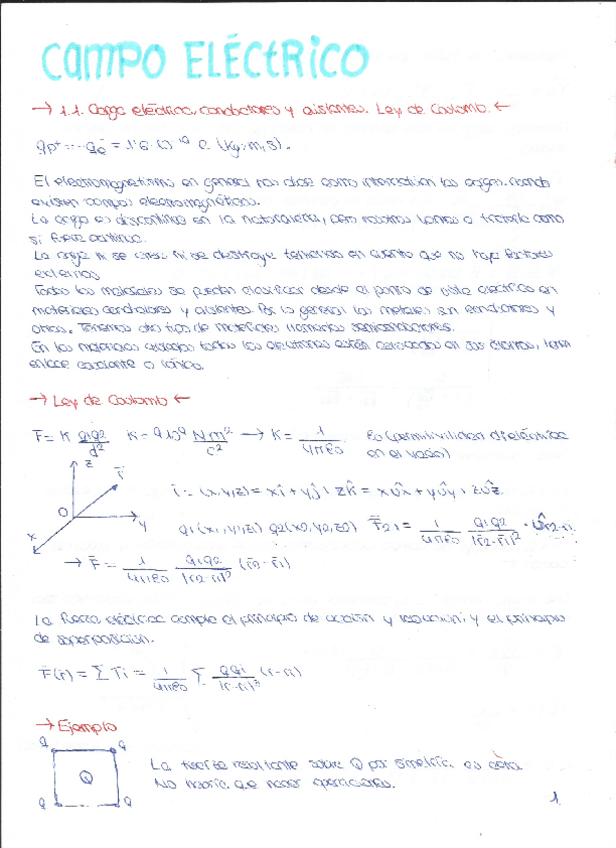 CAMPO ELÉCTRICO
→ 1.1. Carga eléctrica, conductores y aislantes. Ley de Coulomb. ←
qp+ = -qe- = 1'6·10^-19 C (kg, m, s).
El electromagnetismo en general nos dice como interactúan las cargas, cuando
existen campos electromagnéticos.
La carga es discontinua en la naturaleza, pero nosotros vamos a tratarla como
si fuese continua.
La carga ni se crea ni se destruye teniendo en cuenta que no haya factores
externos
Todos los materiales se pueden clasificar desde el punto de vista eléctrico en
materiales conductores y aislantes. Por lo general los metales son conductores y
otros. Tenemos otro tipo de materiales llamados semiconductores.
En los materiales aislados todos los electrones están colocados en sus átomos,
enlace covalente o iónico.
→ Ley de Coulomb ←
F = K q1q2/d² K = 9·10⁹ Nm²/C² → K = 1/4πε0 ε0 (permitividad dieléctrica
en el vacío)
z
r̄
r̄ = (x,y,z) = xî + yĵ + zk̂ = xûx + yûy + zûz
O
y
x
q1(x1,y1,z1) q2(x2,y2,z2) F̄21 = 1/4πε0 q1q2/|r̄2-r̄1|² · ûr2-r1
→ F̄ = 1/4πε0 q1q2/|r̄2-r̄1|³ (r̄2-r̄1)
La fuerza eléctrica cumple el principio de acción y reacción; y el principio
de superposición.
F̄(r̄) = Σ F̄i = 1/4πε0 Σ qqi/|r-ri|³ (r-ri)
→ Ejemplo
q q
La fuerza resultante sobre Q por simetría es cero.
Q
No habría que hacer operaciones.
q q
1